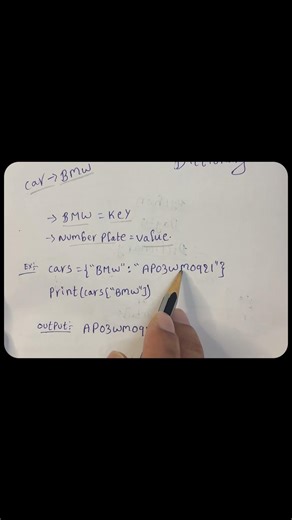 Car → BMW
Dictionary
→ BMW = Key
→ Number Plate = value.
Ex:- cars = {"BMW": "AP03WM0921"}
Print(cars["BMW"])
output: AP03WM09